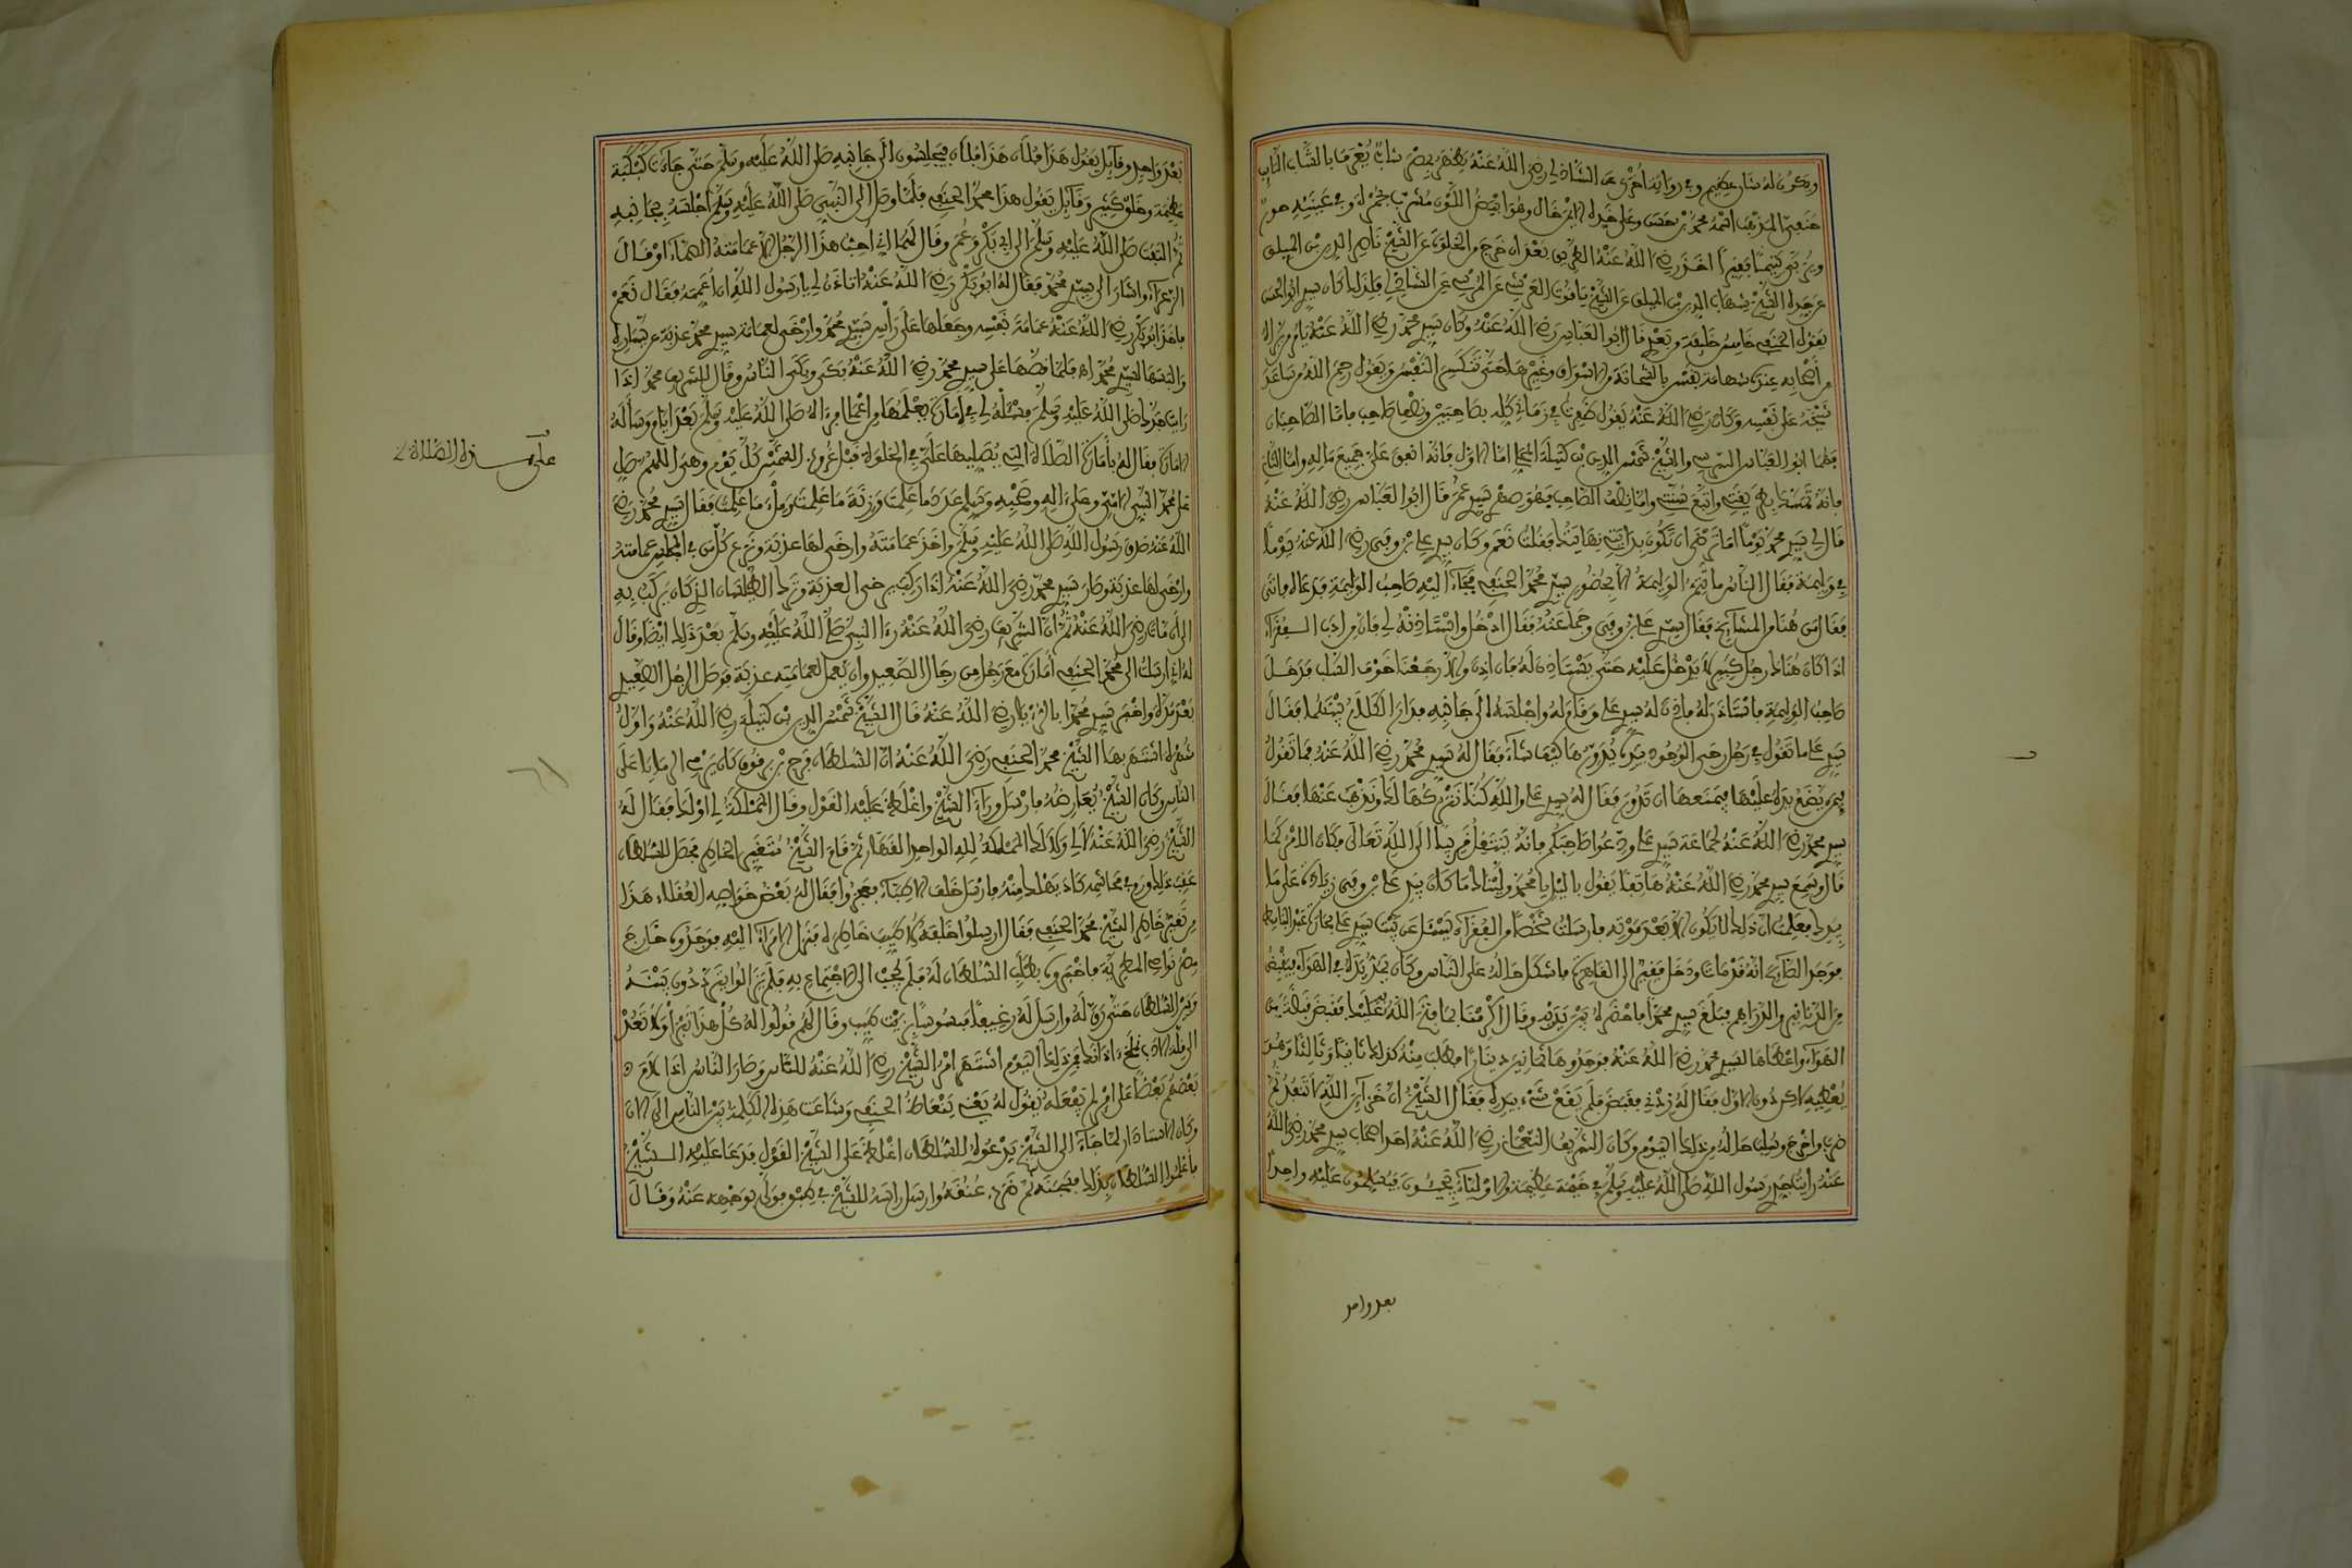 ويكون له شان عظيم وفي رواية اخرى عن الشاذلي رضي الله عنه يظهر بمصر شاب يعرف بالشاب التايب
حنفي المذهب اسمه محمد بن حسن وعلى خده الايمن خال وهو ابيض اللون مشرب بحمرة وفي عينيه حور
ويربى يتيما فقيرا اخذ رضي الله عنه الطريق بعد ان خرج من الخلوة عن الشيخ ناصر الدين بن الميلق
عن جده الشيخ شهاب الدين بن الميلق عن الشيخ ياقوت العرشي عن المرسي عن الشاذلي فلذلك كان سيدي ابو الحسن
يقول الحنفي خامس خليفة من بعدي قال ابو العباس رضي الله عنه وكان سيدي محمد رضي الله عنه يامر من يراه
من اصحابه عنده شهامة نفس بالشحاتة من الاسواق وغيرها حتى تنكسر النفس ويقول رحم الله من ساعد
شيخه على نفسه وكان رضي الله عنه يقول ظفرت في زماني كله بصاحبين ونصف صاحب فاما الصاحبان
فهما ابو العباس السرسي والشيخ شمس الدين بن كتيلة المحلي اما الاول فانه انفق علي جميع ماله واما الثاني
فانه تمسك بطريقتي واتبع سنتي واما نصف الصاحب فهو صهري سيدي عمر قال ابو العباس رضي الله عنه
قال لي سيدي محمد يوما اما ترضى ان تكون بدايتي نهايتك فقلت نعم وكان سيدي علي بن وفى رضي الله عنه يوما
في وليمة فقال الناس ما تتم الوليمة الا بحضور سيدي محمد الحنفي فجاء اليه صاحب الوليمة فدعاه فاتى
فقال من هنا من المشايخ فقال سيدي علي بن وفى وجماعته فقال ادخل واستاذنه لي فان من ادب الفقراء
اذا كان هناك رجل كبير لا يدخل عليه حتى يستاذن له فان اذن والا رجعنا خوف السلب فدخل
صاحب الوليمة فاستاذن له فاذن له سيدي علي وقام له واجلسه الى جانبه فدار الكلام بينهما فقال
سيدي علي ما تقول في رجل رحى الوجود بيده يدورها كيف شاء فقال له سيدي محمد رضي الله عنه فما تقول
فيمن يضع يده عليها فيمنعها ان تدور فقال له سيدي علي والله كنا نتركها لك ونذهب عنها فقال
سيدي محمد رضي الله عنه لجماعة سيدي علي ودعوا صاحبكم فانه ينتقل قريبا الى الله تعالى فكان الامر كما
قال وسمع سيدي محمد رضي الله عنه هاتفا يقول بالليل يا محمد وليناك ما كان بيد علي بن وفى زيادة على ما
بيدك فعلمت ان ذلك لا يكون الا بعد موته فارسلت شخصا من الفقراء يسئل عن بيت سيدي علي
فوجد الصائح انه قد مات ودخل فقير الى القاهرة فاشكل حاله على الناس وكان يمد يده في الهواء فيقبض
من الدنانير والدراهم فبلغ سيدي محمدا فاحضره بين يديه وقال اكرمنا بما فتح الله عليك فقبض قبضة من
الهواء واعطاها لسيدي محمد رضي الله عنه فوجدوها ثمانين دينارا فطلب منه كذلك ثانيا وثالثا وهو
يعطيه لاكن دون الاول فقال له زدني فقبض فلم يقع شيء بيده فقال الشيخ ان خزائن الله لا تنفد ثم
ضرب واخرج وسلب حاله من ذلك اليوم وكان الشريف النعماني رضي الله عنه احد اصحاب سيدي محمد رضي الله
عنه رايت جدي رسول الله صلى الله عليه وسلم في خيمة عظيمة والاولياء يجيئون فيسلمون عليه واحدا
بعد واحد
بعد واحد وقائل يقول هذا فلان هذا فلان فيجلسون الى جانبه صلى الله عليه وسلم حتى جاءت كبكبة
عظيمة وخلق كثير وقائل يقول هذا محمد الحنفي فلما وصل الى النبي صلى الله عليه وسلم اجلسه بجانبه
ثم التفت صلى الله عليه وسلم الى ابي بكر وعمر وقال لهما اني احب هذا الرجل الا عمامته الصماء او قال
الزعراء واشار الى سيدي محمد فقال له ابو بكر رضي الله عنه اتاذن لي يا رسول الله ان اعممه فقال نعم
فاخذ ابو بكر رضي الله عنه عمامة نفسه وجعلها على راس سيدي محمد وارخى لعمامة سيدي محمد عذبة عن يساره
والبسها لسيدي محمد اه فلما قصها على سيدي محمد رضي الله عنه بكى وبكى الناس وقال للشريف محمد اذا
رايت جدك صلى الله عليه وسلم فسئله لي في امارة يعلمها من اعمالي فرءاه صلى الله عليه وسلم بعد ايام وساله
الامارة فقال له بامارة الصلاة التي يصليها علي في الخلوة قبل غروب الشمس كل يوم وهي اللهم صل
على محمد النبي الامي وعلى اله وصحبه وسلم عدد ما علمت وزنة ما علمت وملء ما علمت فقال سيدي محمد رضي
الله عنه صدق رسول الله صلى الله عليه وسلم واخذ عمامته وارخى لها عذبة ونزع كل من في المجلس عمامته
وارخى لها عذبة وصار سيدي محمد رضي الله عنه اذا ركب يرخي العذبة وترك الطيلسان الذي كان يركب به
الى ان مات رضي الله عنه ثم ان الشريف رضي الله عنه رءا النبي صلى الله عليه وسلم بعد ذلك ايضا وقال
له اني ارسلت الى محمد الحنفي امارة مع رجل من رجال الصعيد وان يعمل لعمامته عذبة فوصل الرجل الصعيدي
بعد مدة واخبر سيدي محمدا بالرؤيا رضي الله عنه قال الشيخ شمس الدين بن كتيلة رضي الله عنه واول
شهرة اشتهر بها الشيخ محمد الحنفي رضي الله عنه ان السلطان فرج بن برقوق كان يرمي الرمايا على
الناس وكان الشيخ يعارضه فارسل وراء الشيخ واغلظ عليه القول وقال المملكة لي او لك فقال له
الشيخ رضي الله عنه لا لي ولا لك المملكة لله الواحد القهار ثم قام الشيخ متغير الخاطر فحصل للسلطان
عقب ذلك ورم في محاشمه كاد يهلك منه فارسل خلف الاطباء فعجزوا فقال له بعض خواصه العقلاء هذا
من تغير خاطر الشيخ محمد الحنفي فقال ارسلوا خلفه لاطيب خاطره فنزل الامراء اليه فوجدوه خارج
مصر نواحي المطرية فاخبروه بطلب السلطان له فلم يجب الى الاجتماع به فلم يزالوا يترددون بينه
وبين السلطان حتى رق له وارسل له رغيفا مبسوسا بزيت طيب وقال لهم قولوا له كل هذا تبرا ولا تعد
الى قلة الادب فمن ذلك اليوم اشتهر امر الشيخ رضي الله عنه للناس وصار الناس اذا لام
بعضهم بعضا على امر لم يفعله يقول له يعني يتغاظ الحنفي وشاعت هذه الكلمة بين الناس الى الان
وكان الاستادار لما جاء الى الشيخ يدعوه للسلطان اغلظ على الشيخ القول فدعا عليه الشيخ
فاعلموا السلطان بذلك فسجنه ثم ضرب عنقه وارسل راسه للشيخ في طبق فولى بوجهه عنه وقال